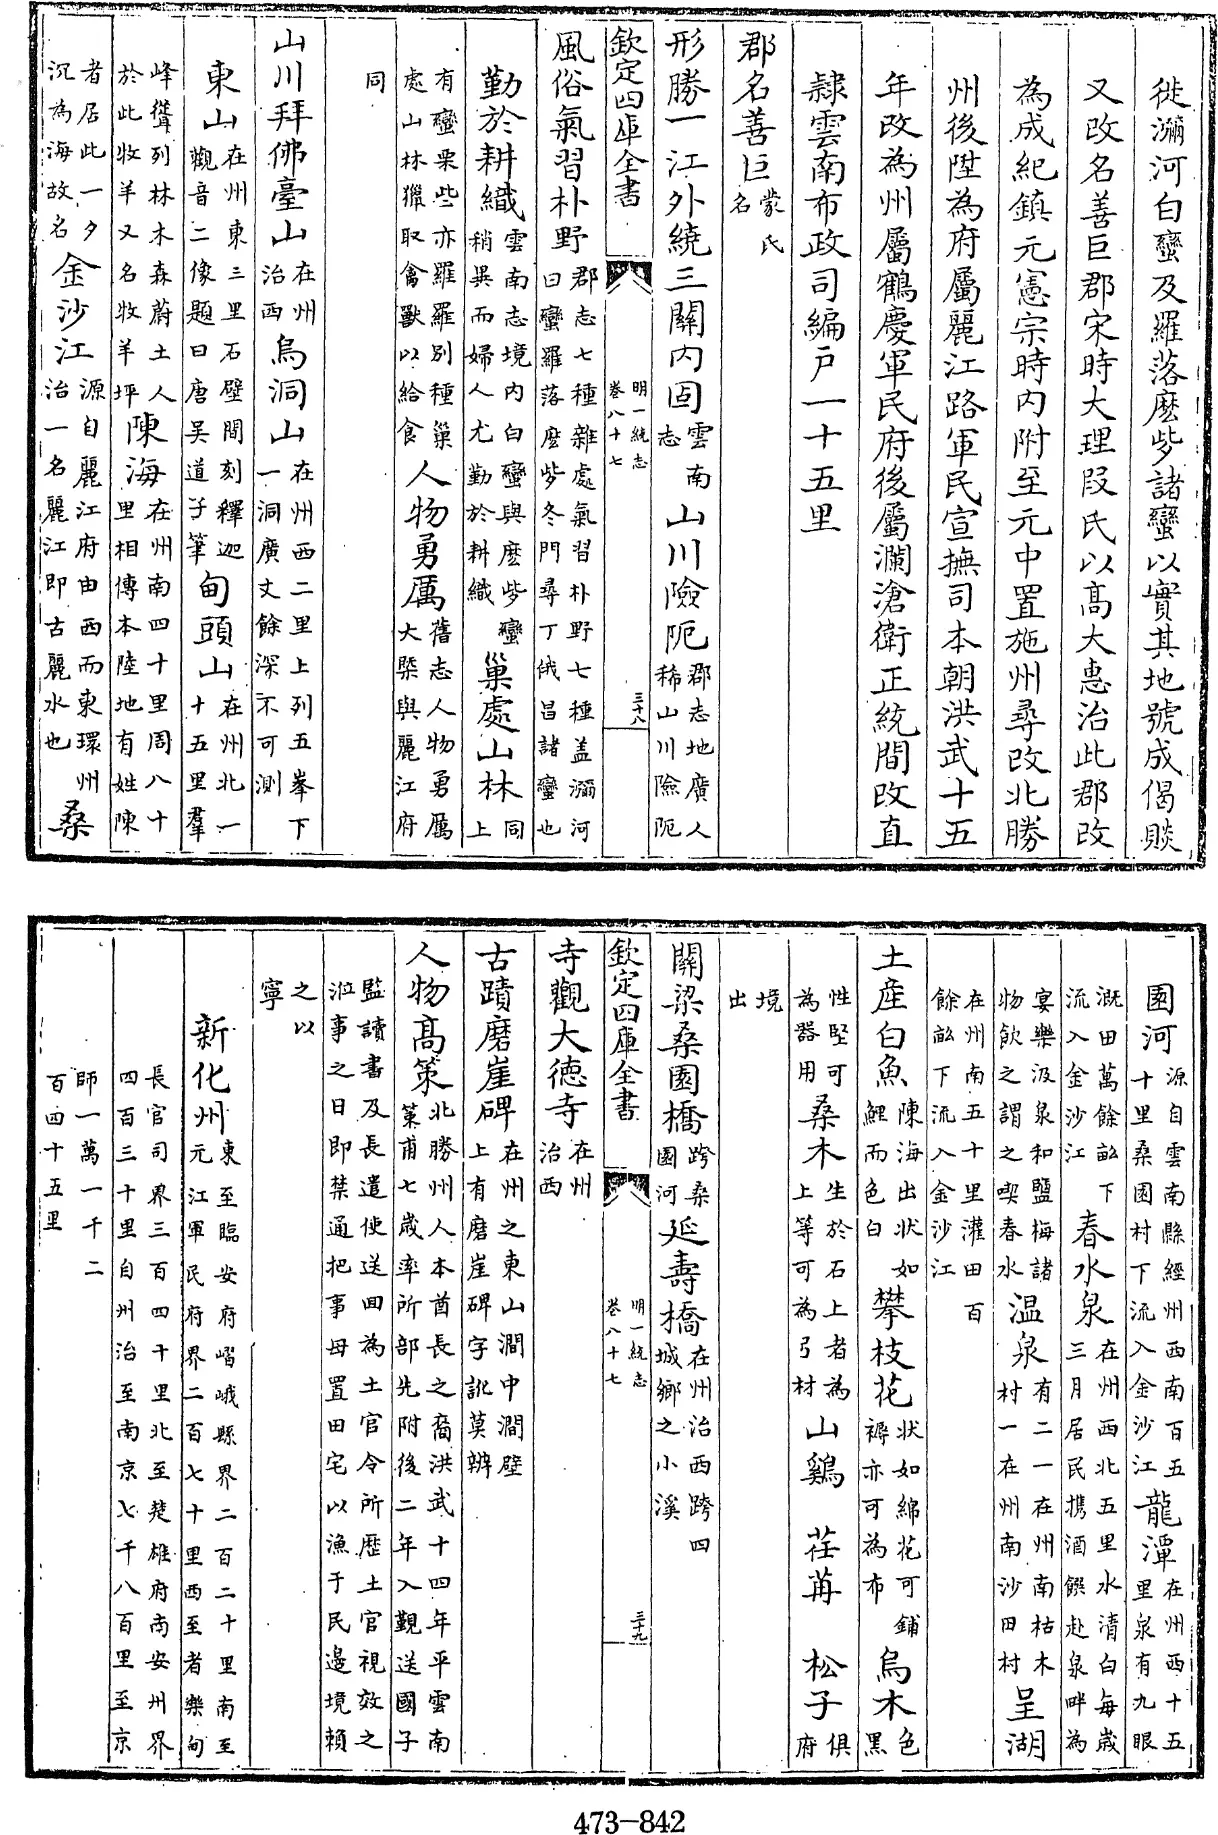 徙瀰河白蠻及羅落麽些諸蠻以實其地號成偈賧
又改名善巨郡宋時大理段氏以髙大惠治此郡改
為成紀鎮元憲宗時内附至元中置施州尋改北勝
州後陞為府屬麗江路軍民宣撫司本朝洪武十五
年改為州屬鶴慶軍民府後屬瀾滄衛正統間改直
隸雲南布政司編户一十五里
郡名善巨蒙氏名
形勝一江外繞三關内固雲南志山川險阨郡志地廣人稀山川險阨
欽定四庫全書 明一統志卷八十七 三十八
風俗氣習朴野郡志七種雜處氣習朴野七種盖瀰河曰蠻羅落麽些冬門尋丁俄昌諸蠻也
勤於耕織雲南志境内白蠻與麽些蠻同稍異而婦人尤勤於耕織巢處山林上
有蠻栗些亦羅羅别種巢處山林獵取禽獸以給食人物勇厲舊志人物勇厲大槩與麗江府
同
山川拜佛臺山在州治西烏洞山在州西二里上列五峯下一洞廣丈餘深不可測
東山在州東三里石壁間刻釋迦觀音二像題曰唐吴道子筆甸頭山在州北一十五里羣
峰聳列林木森蔚土人於此牧羊又名牧羊坪陳海在州南四十里周八十里相傳本陸地有姓陳
者居此一夕沉為海故名金沙江源自麗江府由西而東環州治一名麗江即古麗水也桑
園河源自雲南縣經州西南百五十里桑園村下流入金沙江龍潭在州西十五里泉有九眼
溉田萬餘畝下流入金沙江春水泉在州西北五里水清白每歲三月居民携酒饌赴泉畔為
宴樂汲泉和鹽梅諸物飲之謂之喫春水温泉有二一在州南枯木村一在州南沙田村呈湖
在州南五十里灌田百餘畝下流入金沙江
土産白魚陳海出狀如鯉而色白攀枝花狀如綿花可鋪褥亦可為布烏木色黑
性堅可為器用桑木生於石上者為上等可為弓材山鷄 荏苒 松子俱府
境出
關梁桑園橋跨桑園河延壽橋在州治西跨四城鄉之小溪
欽定四庫全書 明一統志卷八十七 三十九
寺觀大德寺在州治西
古蹟磨崖碑在州之東山澗中澗壁上有磨崖碑字訛莫辨
人物髙策北勝州人本酋長之裔洪武十四年平雲南策甫七歲率所部先附後二年入覲送國子
監讀書及長遣使送回為土官令所歷土官視效之涖事之日即禁通把事毋置田宅以漁于民邊境賴
之以寧
新化州東至臨安府嶍峨縣界二百二十里南至元江軍民府界二百七十里西至者樂甸
長官司界三百四十里北至楚雄府南安州界四百三十里自州治至南京七千八百里至京
師一萬一千二百四十五里
473-842